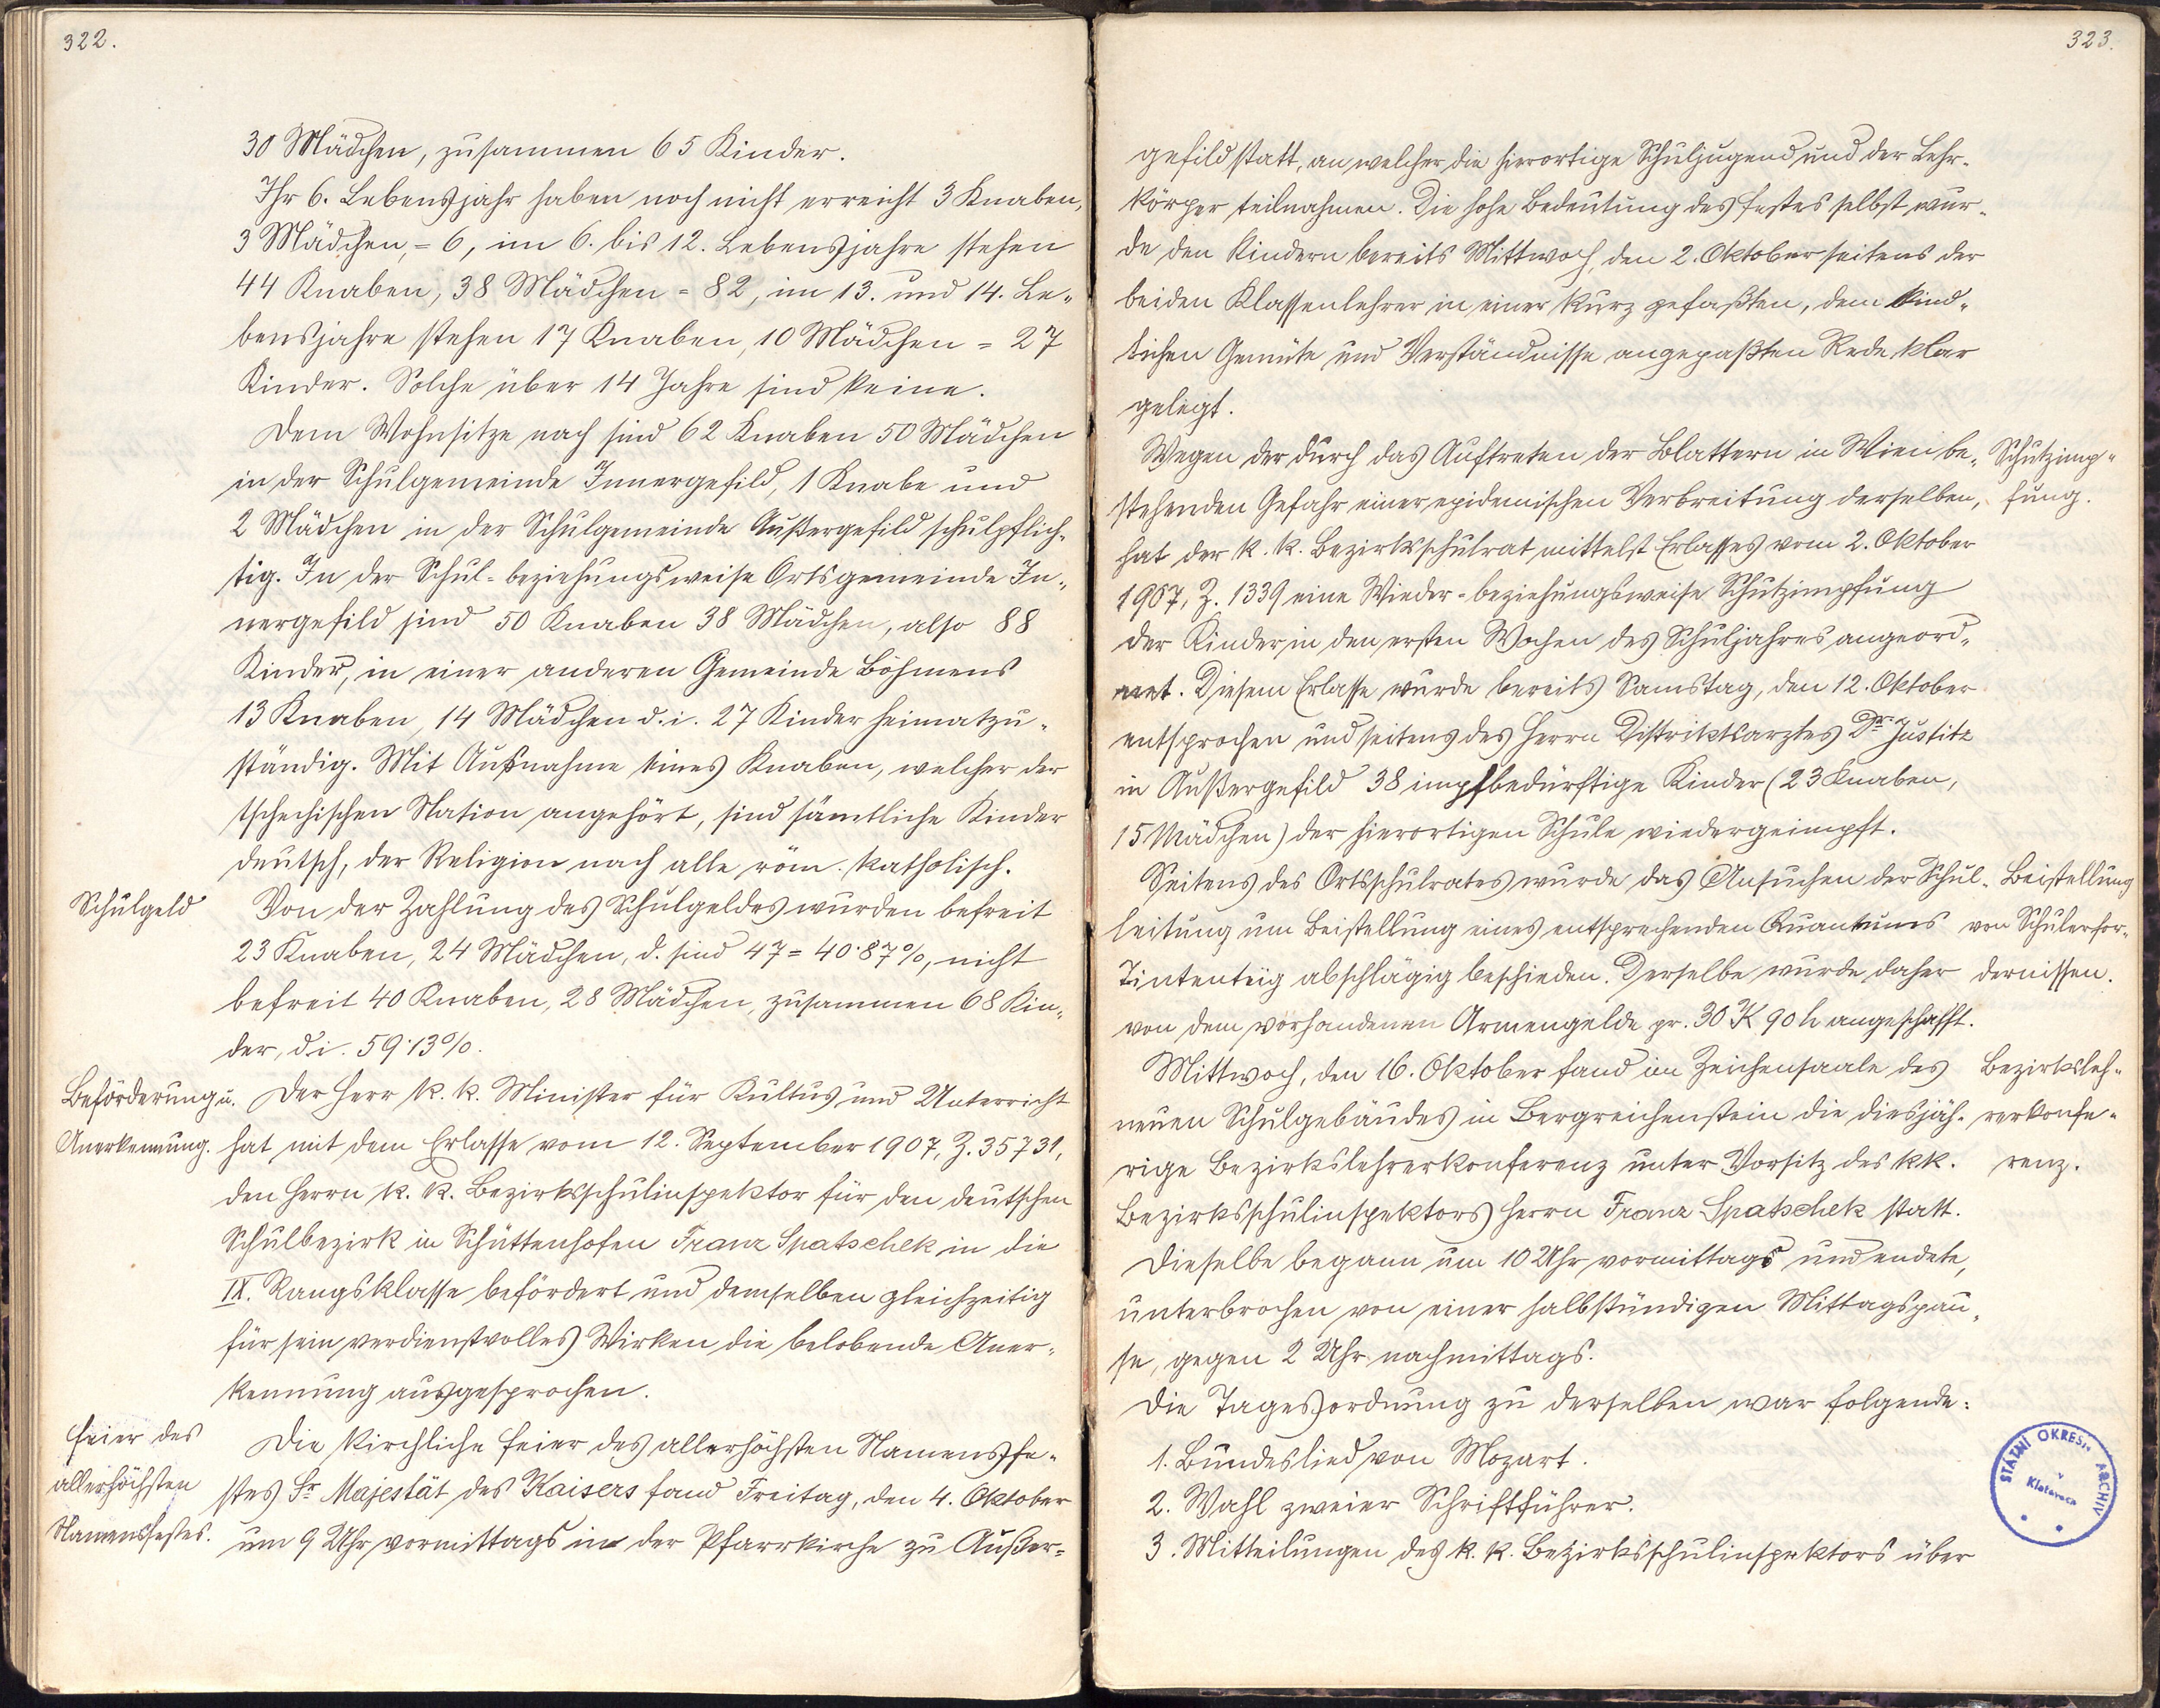 322.
30 Mädchen, zusammen 65 Kinder.
Ihr 6. Lebensjahr haben noch nicht erreicht 3 Knaben,
3 Mädchen, = 6, im 6. bis 12. Lebensjahre stehen
44 Knaben, 38 Mädchen = 82, im 13. und 14. Le-
bensjahre stehen 17 Knaben, 10 Mädchen = 27
Kinder. Solche über 14 Jahre sind keine.
Dem Wohnsitze nach sind 62 Knaben 50 Mädchen
in der Schulgemeinde Innergefild, 1 Knabe und
2 Mädchen in der Schulgemeinde Außergefild schulpflich-
tig. In der Schul- beziehungsweise Ortsgemeinde In-
nergefild sind 50 Knaben 38 Mädchen, also 88
Kinder, in einer anderen Gemeinde Böhmens
13 Knaben, 14 Mädchen d. i. 27 Kinder heimatzu-
ständig. Mit Außnahme eines Knaben, welcher der
tschechischen Nation angehört, sind sämtliche Kinder
deutsch, der Religion nach alle röm. katholisch.
Schulgeld
Von der Zahlung des Schulgeldes wurden befreit
23 Knaben, 24 Mädchen, d. sind 47 = 40·87%, nicht
befreit 40 Knaben, 28 Mädchen, zusammen 68 Kin-
der, d. i. 59·13%.
Beförderung u.
Anerkennung.
Der Herr k. k. Minister für Kultus und Unterricht
hat mit dem Erlasse vom 12. September 1907, Z. 35731,
den Herrn k. k. Bezirksschulinspektor für den deutschen
Schulbezirk in Schüttenhofen Franz Spatschek in die
IX. Rangsklasse befördert und demselben gleichzeitig
für sein verdienstvolles Wirken die belobende Aner-
kennung ausgesprochen.
Feier des
allerhöchsten
Namensfestes.
Die kirchliche Feier des allerhöchsten Namensfe-
stes Sr Majestät des Kaisers fand Freitag, den 4. Oktober
um 9 Uhr vormittags in der Pfarrkirche zu Außer-
323.
gefild statt, an welcher die hierortige Schuljugend und der Lehr-
körper teilnahmen. Die hohe Bedeutung des Festes selbst wur-
de den Kindern bereits Mittwoch, den 2. Oktober seitens der
beiden Klassenlehrer in einer kurz gefaßten, dem kind-
lichen Gemüte und Verständnisse angepaßten Rede klar
gelegt.
Wegen der durch das Auftreten der Blattern in Wien be-
stehenden Gefahr einer epidemischen Verbreitung derselben,
hat der k. k. Bezirksschulrat mittelst Erlasses vom 2. Oktober
1907, Z. 1339 eine Wieder- beziehungsweise Schutzimpfung
der Kinder in den ersten Wochen des Schuljahres angeord-
net. Diesem Erlasse wurde bereits Samstag, den 12. Oktober
entsprochen und seitens des Herrn Distriktsarztes Dr. Justitz
in Außergefild 38 impfbedürftige Kinder (23 Knaben,
15 Mädchen) der hierortigen Schule wiedergeimpft.
Schutzimp-
fung.
Seitens des Ortsschulrates wurde das Ansuchen der Schul-
leitung um Beistellung eines entsprechenden Quantums
Tintenteig abschlägig beschieden. Derselbe wurde daher
von dem vorhandenen Armengelde pr. 30 K 90 h angeschafft.
Beistellung
von Schulerfor-
dernissen.
Mittwoch, den 16. Oktober fand im Zeichensaale des
neuen Schulgebäudes in Bergreichenstein die diesjäh-
rige Bezirkslehrerkonferenz unter Vorsitz des k k.
Bezirksschulinspektors Herrn Franz Spatschek statt.
Dieselbe begann um 10 Uhr vormittags und endete,
unterbrochen von einer halbstündigen Mittagspau-
se, gegen 2 Uhr nachmittags.
Die Tagesordnung zu derselben war folgende:
Bezirksleh-
rerkonfe-
renz.
1. Bundeslied von Mozart.
2. Wahl zweier Schriftführer.
3. Mitteilungen des k. k. Bezirksschulinspektors über
STÁTNÍ OKRESN. ARCHIV
v
Klatovech